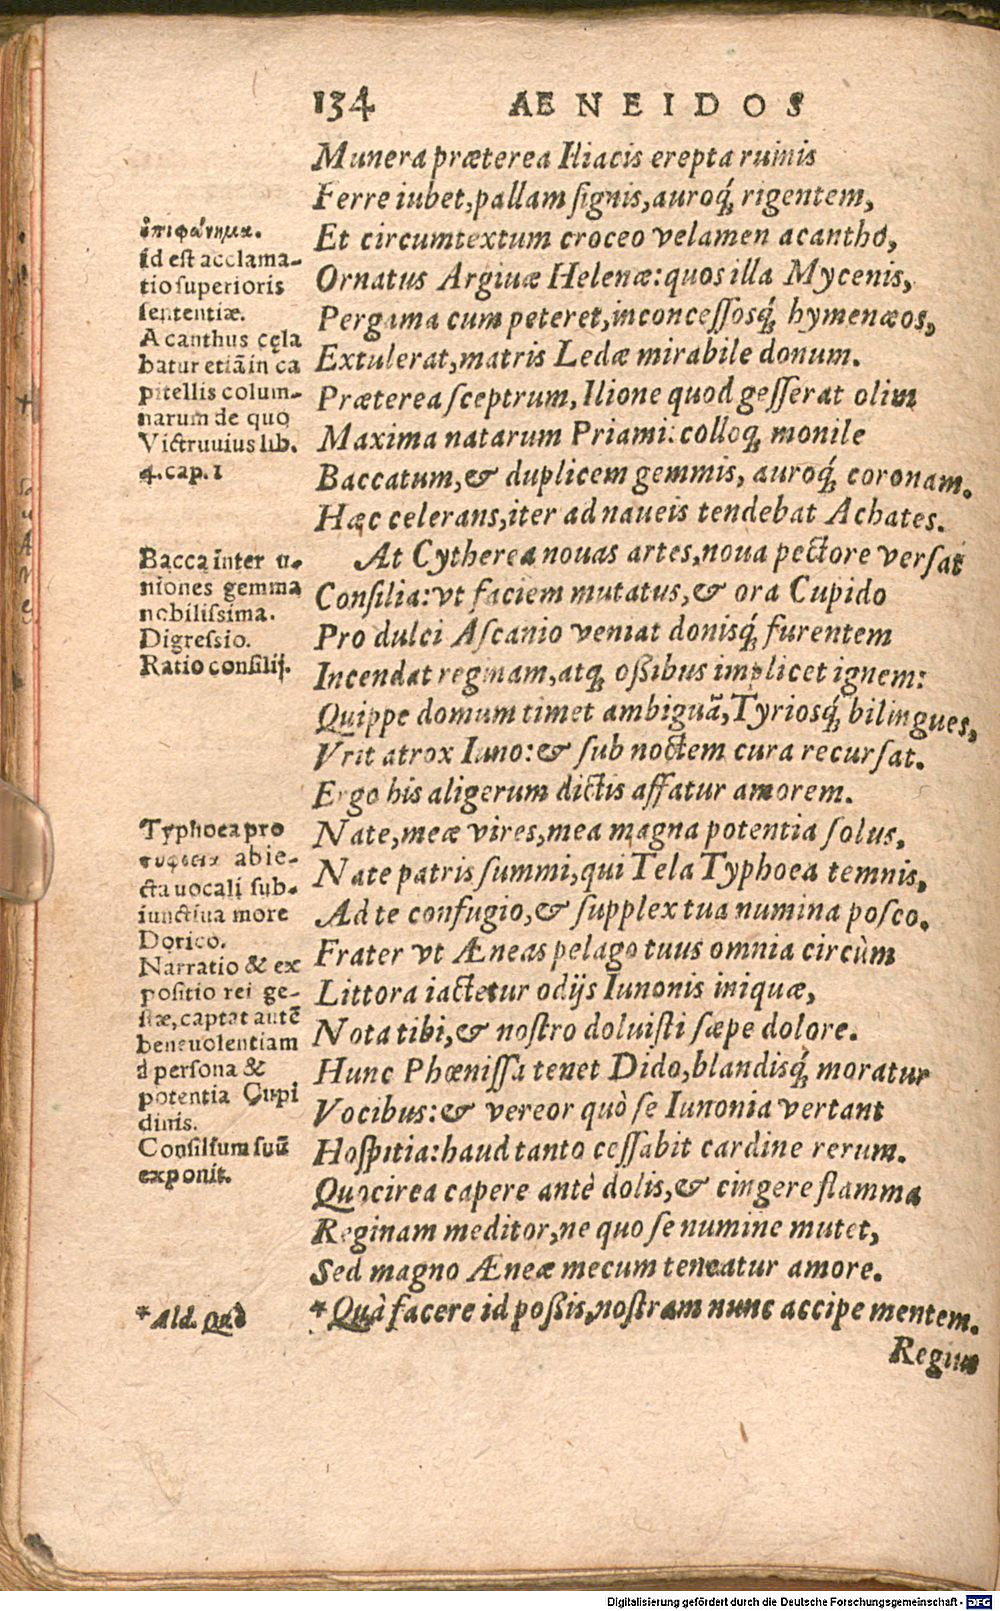 134 AENEIDOS
Munera præterea Iliacis erepta ruinis
Ferre iubet, pallam ſignis, auroq́; rigentem,
Et circumtextum croceo velamen acantho,
Ornatus Argiuæ Helenæ: quos illa Mycenis,
Pergama cum peteret, inconceſſosq́; hymenæos,
Extulerat, matris Ledæ mirabile donum.
Præterea ſceptrum, Ilione quod geſſerat olim
Maxima natarum Priami: colloq; monile
Baccatum, & duplicem gemmis, auroq́; coronam.
Hæc celerans, iter ad naueis tendebat Achates.
At Cytherea nouas artes, noua pectore verſat
Conſilia: vt faciem mutatus, & ora Cupido
Pro dulci Aſcanio veniat donisq́; furentem
Incendat reginam, atq; oßibus implicet ignem:
Quippe domum timet ambiguã, Tyriosq́; bilingues,
Vrit atrox Iuno: & ſub noctem cura recurſat.
Ergo his aligerum dictis affatur amorem.
Nate, meæ vires, mea magna potentia ſolus,
Nate patris ſummi, qui Tela Typhoea temnis,
Ad te confugio, & ſupplex tua numina poſco.
Frater vt Æneas pelago tuus omnia circùm
Littora iactetur odijs Iunonis iniquæ,
Nota tibi, & noſtro doluiſti ſæpe dolore.
Hunc Phœniſſa tenet Dido, blandisq́; moratur
Vocibus: & vereor quò ſe Iunonia vertant
Hoſpitia: haud tanto ceſſabit cardine rerum.
Quocirca capere antè dolis, & cingere flamma
Reginam meditor, ne quo ſe numine mutet,
Sed magno Æneæ mecum teneatur amore.
*Quà facere id poßis, noſtram nunc accipe mentem.
Regius
ἐπιφώνημα.
id eſt acclama-
tio ſuperioris
ſententiæ.
Acanthus cęla
batur etiã in ca
pitellis colum-
narum de quo
Victruuius lib.
4. cap. 1
Bacca inter u-
niones gemma
nobiliſsima.
Digreſsio.
Ratio conſilij.
Typhoea pro
τυφοεια abie-
cta vocali ſub-
iunctiua more
Dorico.
Narratio & ex
poſitio rei ge-
ſtæ, captat autē
beneuolentiam
à perſona &
potentia Cupi
dinis.
Conſilium ſuū
exponit.
*Ald. Quò
Digitalisierung gefördert durch die Deutsche Forschungsgemeinschaft - DFG